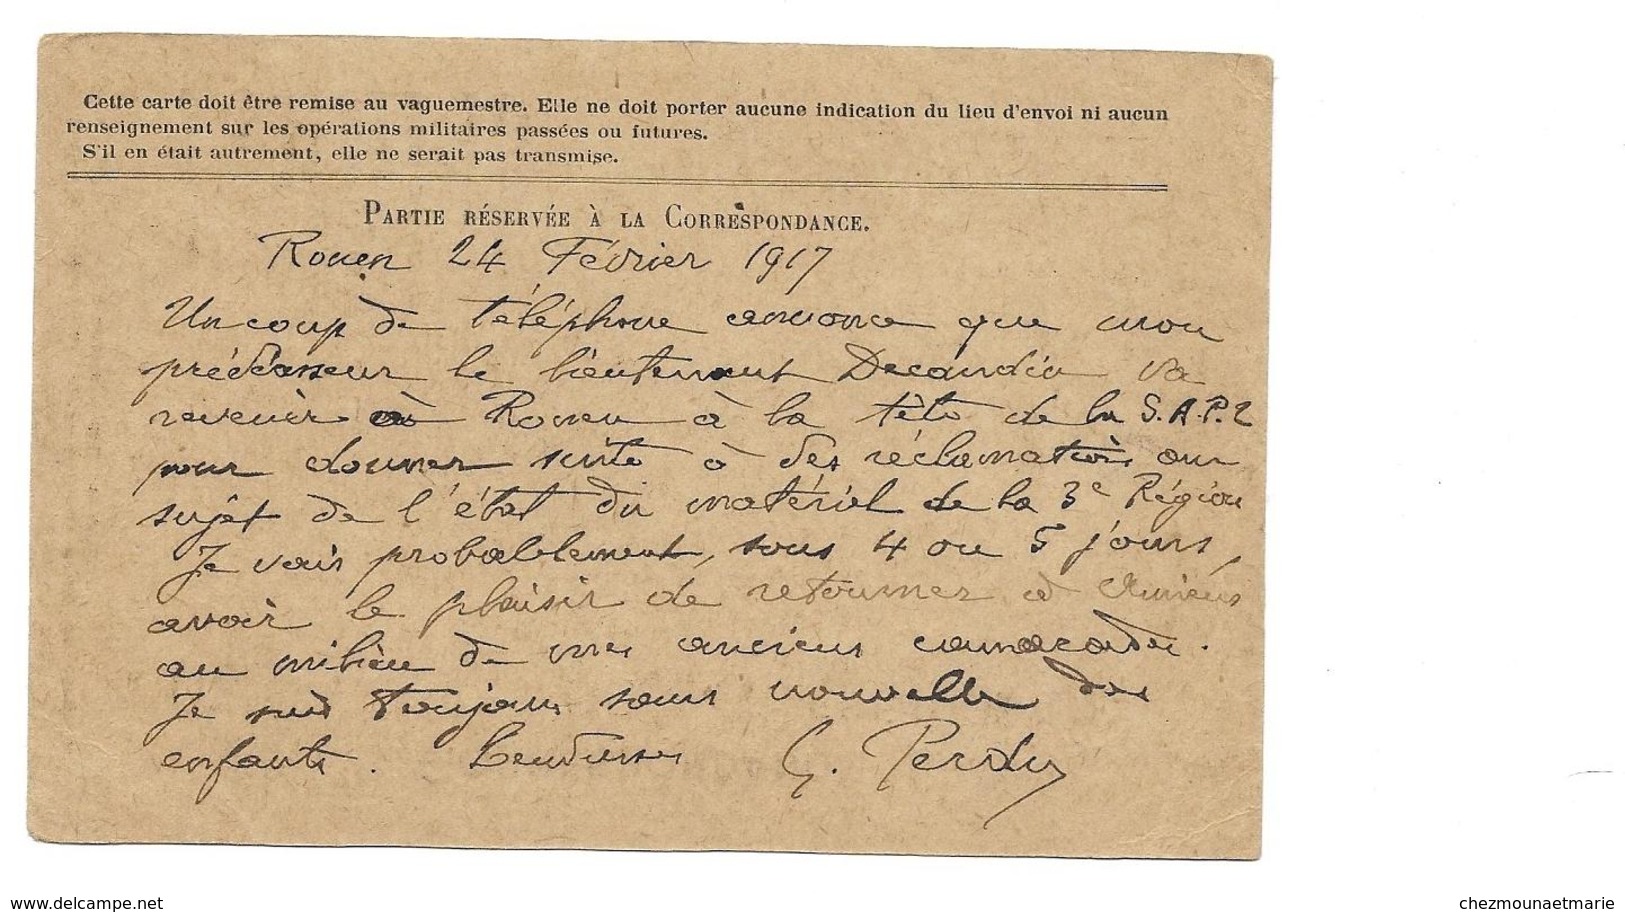 Cette carte doit être remise au vaguemestre. Elle ne doit porter aucune indication du lieu d'envoi ni aucun
renseignement sur les opérations militaires passées ou futures.
S'il en était autrement, elle ne serait pas transmise.
PARTIE RÉSERVÉE À LA CORRESPONDANCE.
Rouen 24 Février 1917
Un coup de téléphone annonce que mon
prédécesseur le lieutenant va
revenir à Rouen à la tête de la S.A.P.2
pour donner suite à des réclamations au
sujet de l'état du matériel de la 3e Région
Je vais probablement, sous 4 ou 5 jours,
avoir le plaisir de retourner à Amiens
au milieu de mes anciens camarades.
Je suis toujours sans nouvelle des
enfants. G. Perdu
www.delcampe.net
chezmounaetmarie